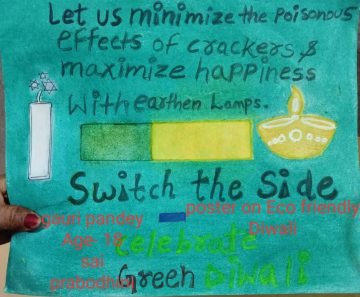 Let us minimize the Poisonous
effects of crackers &
maximize happiness
With earthen Lamps.
Switch the Side
gauri pandey
Age- 13
sai
prabodhan
poster on Eco friendly
Diwali
celebrate
Green Diwali